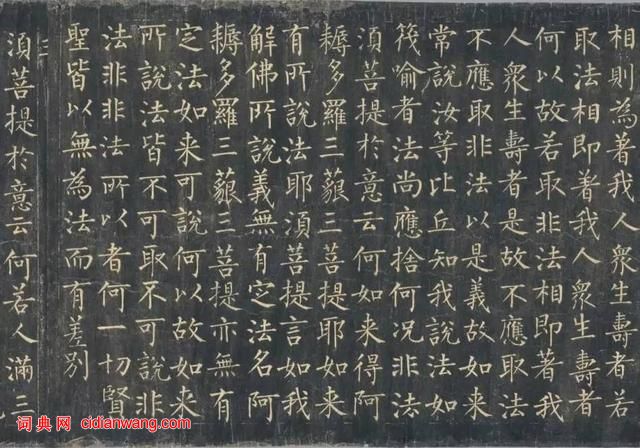 相則為著我人衆生壽者若
取法相即著我人衆生壽者
何以故若取非法相即著我
人衆生壽者是故不應取法
不應取非法以是義故如来
常說汝等比丘知我說法如
筏喻者法尚應捨何況非法
須菩提於意云何如来得阿
耨多羅三藐三菩提耶如来
有所說法耶須菩提言如我
解佛所說義無有定法名阿
耨多羅三藐三菩提亦無有
定法如来可說何以故如来
所說法皆不可取不可說非
法非非法所以者何一切賢
聖皆以無為法而有差別
須菩提於意云何若人滿三
词典网 cidianwang.com